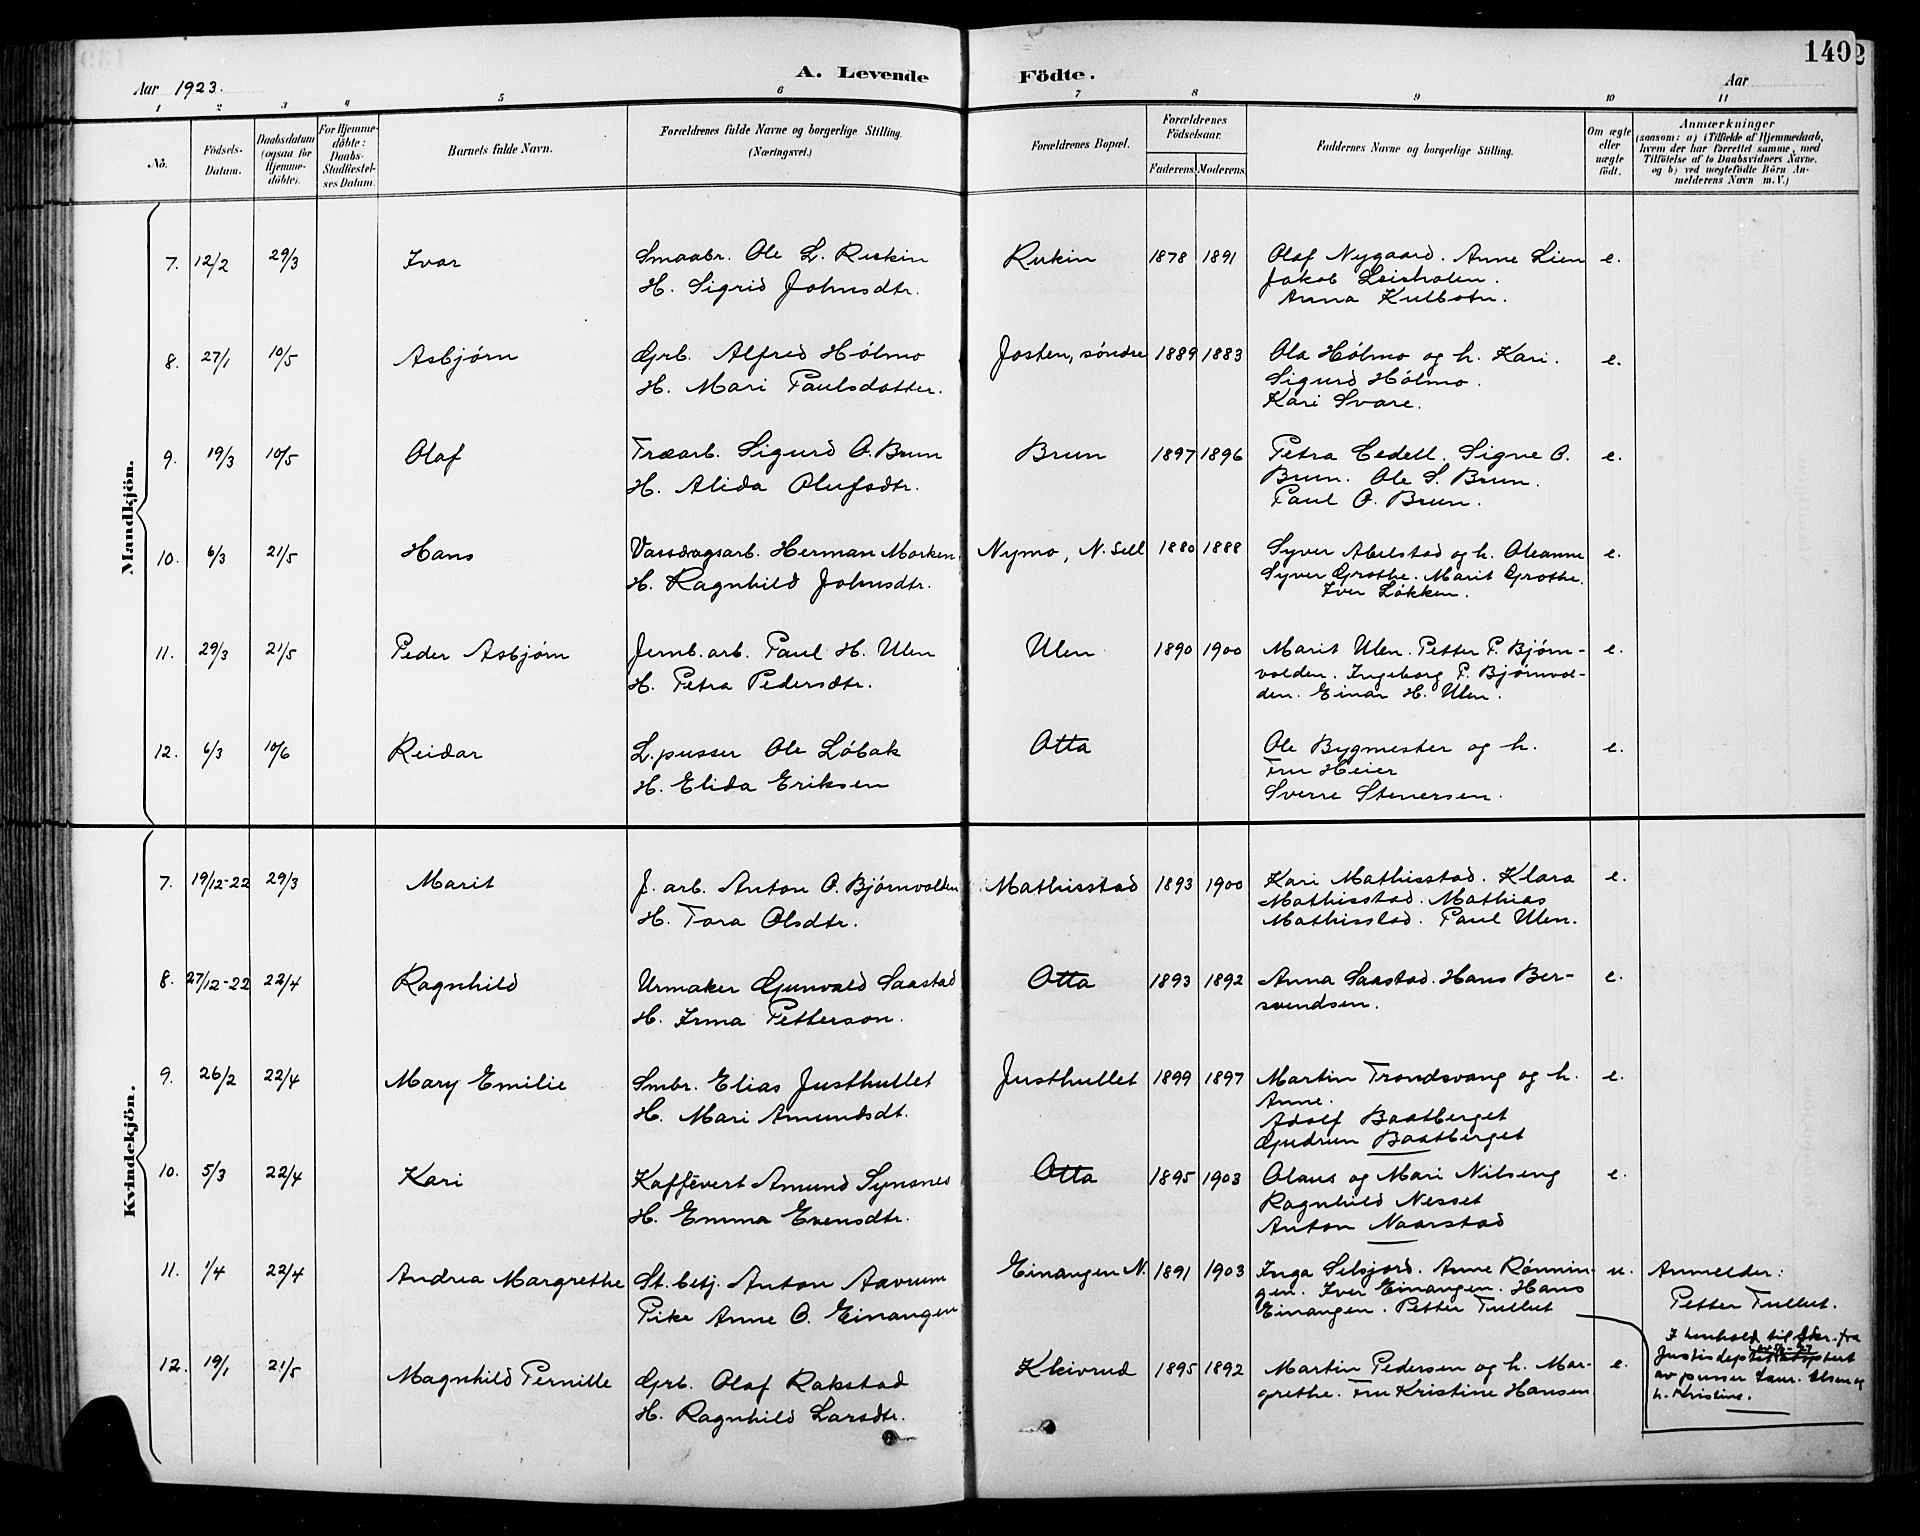 140
Aar 1923.
A. Levende Födte.
Aar
1 2 3 4 5 6 7 8 9 10 11
No. | Födsels-Datum. | Daabsdatum (ogsaa for Hjemmedöbte). | For Hjemmedöbte: Daabs-Stadfæstelses Datum. | Barnets fulde Navn. | Forældrenes fulde Navne og borgerlige Stilling. (Næringsvei.) | Forældrenes Bopæl. | Forældrenes Födselsaar. Faderens. Moderens. | Faddernes Navne og borgerlige Stilling. | Om ægte eller uægte født. | Anmærkninger (saasom: a) i Tilfælde af Hjemmedaab, hvem der har forrettet samme, med Tilföielse af to Daabsvidners Navne. og b) ved uægtefødte Börn Anmelderens Navn m.V.)
Mandkjön.
7. 12/2 29/3 Ivar Smaabr. Ole L. Ruskin Ruskin 1878 1891 Olaf Nygaard. Anne Lien e.
H. Sigrid Johnsdtr. Jakob Leirholen.
Anna Kulbotn.
8. 27/1 10/5 Asbjørn Grb. Alfred Hølmo Josten, søndre 1889 1883 Ola Hølmo og h. Kari. e.
H. Mari Paulsdatter. Sigurd Hølmo.
Kari Svare.
9. 19/3 10/5 Olaf Træarb. Sigurd O. Brun Brun 1897 1896 Petra Cedell. Signe O. e.
H. Alida Olufsdtr. Brun. Ole S. Brun.
Paul O. Brun.
10. 6/3 21/5 Hans Vassdragsarb. Herman Morken. Nymo, N. Sell 1880 1888 Syver Abelstad og h. Oleanne e.
H. Ragnhild Johnsdtr. Syver Grothe. Marit Grothe.
Iver Løkken.
11. 29/3 21/5 Peder Asbjørn Jernb.arb. Paul H. Ulen Ulen 1890 1900 Marit Ulen. Petter P. Bjørn- e.
H. Petra Pedersdtr. volden. Ingeborg P. Bjørnvol-
den. Einar H. Ulen.
12. 6/3 10/6 Reidar L.pusser Ole Løbak Otta Ole Bygmester og h. e.
H. Elida Eriksen Fru Heier
Sverre Stenersen.
Kvindekjön.
7. 19/12-22 29/3 Marit J. arb. Anton O. Bjørnvolden Mathisstad 1893 1900 Kari Mathisstad. Klara e.
H. Tora Olsdtr. Mathisstad. Mathias
Mathisstad. Paul Ulen.
8. 27/12-22 22/4 Ragnhild Urmaker Gunvald Saastad Otta 1893 1892 Anna Saastad. Hans Ber- e.
H. Irma Petterson. svendsen.
9. 26/2 22/4 Mary Emilie Smbr. Elias Justhullet Justhullet 1899 1897 Martin Trondsvang og h. e.
H. Mari Amundsdt. Anne.
Adolf Baatberget
Gudrun Baatberget
10. 5/3 22/4 Kari Kaffevert Amund Synsnes Otta 1895 1903 Olaus og Mari Nilseng e.
H. Emma Evensdtr. Ragnhild Nesset
Anton Naarstad
11. 1/4 22/4 Andrea Margrethe St.betj. Anton Aavrum Einangen N. 1891 1903 Inga Selsjord. Anne Rønnin- u. Anmelder:
Pike Anne O. Einangen gen. Iver Einangen. Hans Petter Tullut.
Einangen. Petter Tullut
I henhold til skr. fra
Justisdept.
av pusser Laur. Olsen og
h. Kristine.
12. 19/1 21/5 Magnhild Pernille Grb. Olaf Rakstad Kleivrud 1895 1892 Martin Pedersen og h. Mar- e.
H. Ragnhild Larsdtr. grethe. Fru Kristine Hansen